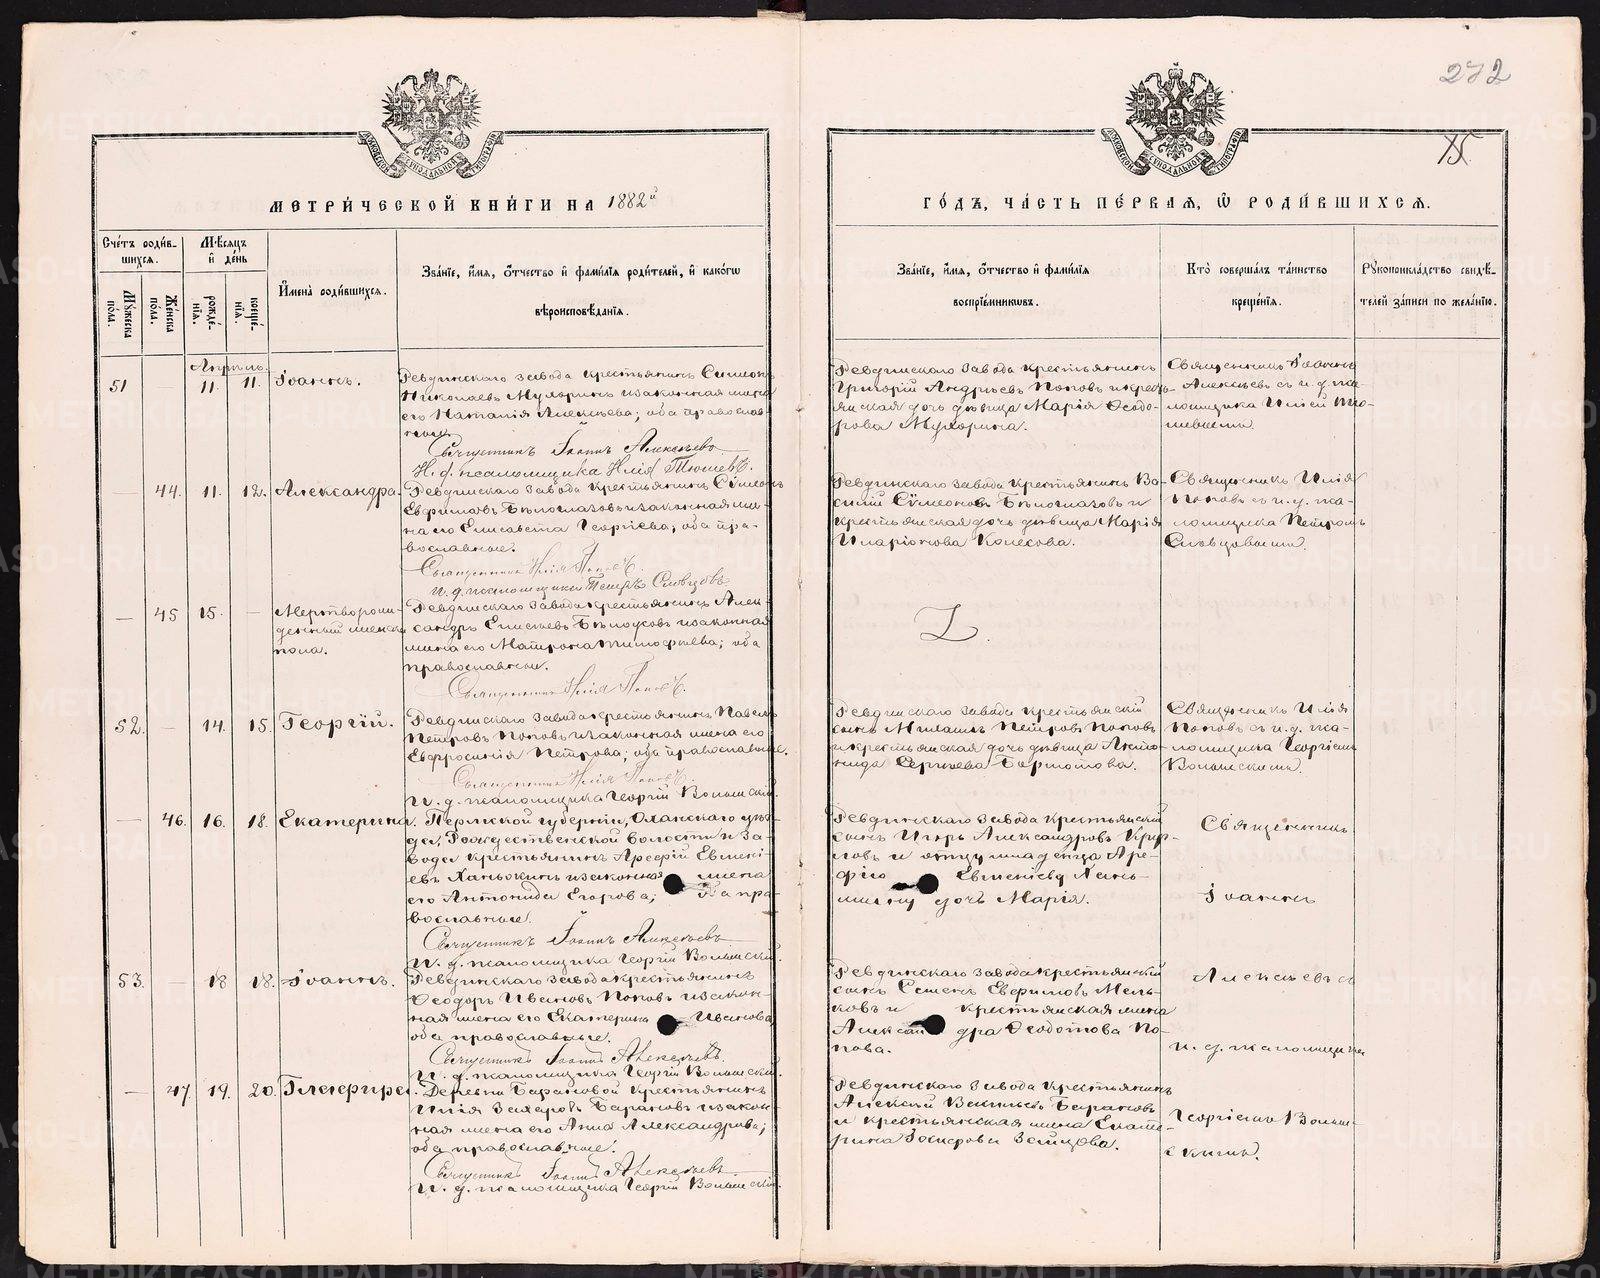 272
75.
МЕТРИ́ЧЕСКОЙ КНИ́ГИ НА 1882й
ГО́ДЪ, ЧА́СТЬ ПЕ́РВАЯ, Ѡ РОДИ́ВШИХСЯ.
Сче́тъ роди́в-
шихся.
Мѣ́сяцъ
и́ де́нь
Му́жеска
по́ла.
Же́нска
по́ла.
рожде́-
нїя.
креще́-
нїя.
И҆мена̀ роди́вшихся.
Зва́нїе, и҆́мя, ѻ҆́тчество и҆ фами́лїя роди́телей, и҆ како́гѡ
вѣроисповѣ́данїя.
Зва́нїе, и҆́мя, ѻ҆́тчество и҆ фами́лїя
воспрїе́мникѡвъ.
Кто̀ соверша́лъ та́инство
креще́нїя.
Рꙋкоприкла́дство свидѣ́-
телей за́писи по жела́нїю.
Апрѣль
51 — 11. 11. Іоаннъ.
Ревдинскаго завода крестьянинъ Симеонъ
Николаевъ Мухоринъ и законная жена
его Наталія Алексѣева; оба православ-
ные.
Священникъ Іоаннъ Алексѣевъ
И. д. псаломщика Илія Тюшевъ.
Ревдинскаго завода крестьянинъ
Григорій Андреевъ Поповъ и кресть-
янская дочь дѣвица Марія Ѳеодо-
рова Мухорина.
Священникъ Іоаннъ
Алексѣевъ съ и. д. пса-
ломщика Иліей Тю-
шевымъ.
— 44. 11. 12. Александра.
Ревдинскаго завода крестьянинъ Сѵмеонъ
Евфимовъ Бѣлоглазовъ и законная же-
на его Елисавета Георгіева; оба пра-
вославные.
Священникъ Илія Поповъ.
и. д. псаломщика Петръ Словцовъ
Ревдинскаго завода крестьянинъ Ва-
силій Сѵмеоновъ Бѣлоглазовъ и
крестьянская дочь дѣвица Марія
Иларіонова Колесова.
Священникъ Илія
Поповъ съ и. д. пса-
ломщика Петромъ
Словцовымъ.
— 45 15. — Мертворож-
денный женска
пола.
Ревдинскаго завода крестьянинъ Алек-
сандръ Елисѣевъ Бѣлоусовъ и законная
жена его Матрона Тимофѣева; оба
православные.
Священникъ Илія Поповъ.
Z.
52. — 14. 15. Георгій.
Ревдинскаго завода крестьянинъ Павелъ
Петровъ Поповъ и законная жена его
Евфросинія Петрова; оба православные.
Священникъ Илія Поповъ.
И. д. псаломщика Георгій Волынскій
Ревдинскаго завода крестьянскій
сынъ Петровъ Поповъ
и крестьянская дочь дѣвица Анто-
нида Сергѣева
Священникъ Илія
Поповъ съ и. д. пса-
ломщика Георгіемъ
Волынскимъ.
— 46. 16. 18. Екатерина.
Пермской губерніи, Оханскаго уѣз-
да, Рождественской волости и за-
вода крестьянинъ Арефій Евгені-
евъ Ханжинъ и законная жена
его Антонида Егорова; оба пра-
вославные.
Священникъ Іоаннъ Алексѣевъ
И. д. псаломщика Георгій Волынскій.
Ревдинскаго завода крестьянскій
сынъ Игорь Александровъ
и отца младенца Аре-
фія Евгеніева Хан-
жина дочь Марія.
Священникъ
Іоаннъ
53. — 18 18. Іоаннъ.
Ревдинскаго завода крестьянинъ
Ѳеодоръ Ивановъ Поповъ и закон-
ная жена его Екатерина Иванова;
оба православные.
Священникъ Іоаннъ Алексѣевъ.
И. д. псаломщика Георгій Волынскій
Ревдинскаго завода крестьянскій
сынъ Семенъ Евфимовъ Мель-
ковъ и крестьянская жена
Александра Ѳеодотова По-
пова.
Алексѣевъ съ
и. д. псаломщика
— 47 19. 20. Глафира.
Деревни Барановой крестьянинъ
Илія Захаровъ Барановъ и закон-
ная жена его Анна Александрова;
оба православные.
Священникъ Іоаннъ Алексѣевъ
И. д. псаломщика Георгій Волынскій.
Ревдинскаго завода крестьянинъ
Алексѣй Васильевъ Барановъ
и крестьянская жена Екате-
рина Зайцова.
Георгіемъ Волын-
скимъ.